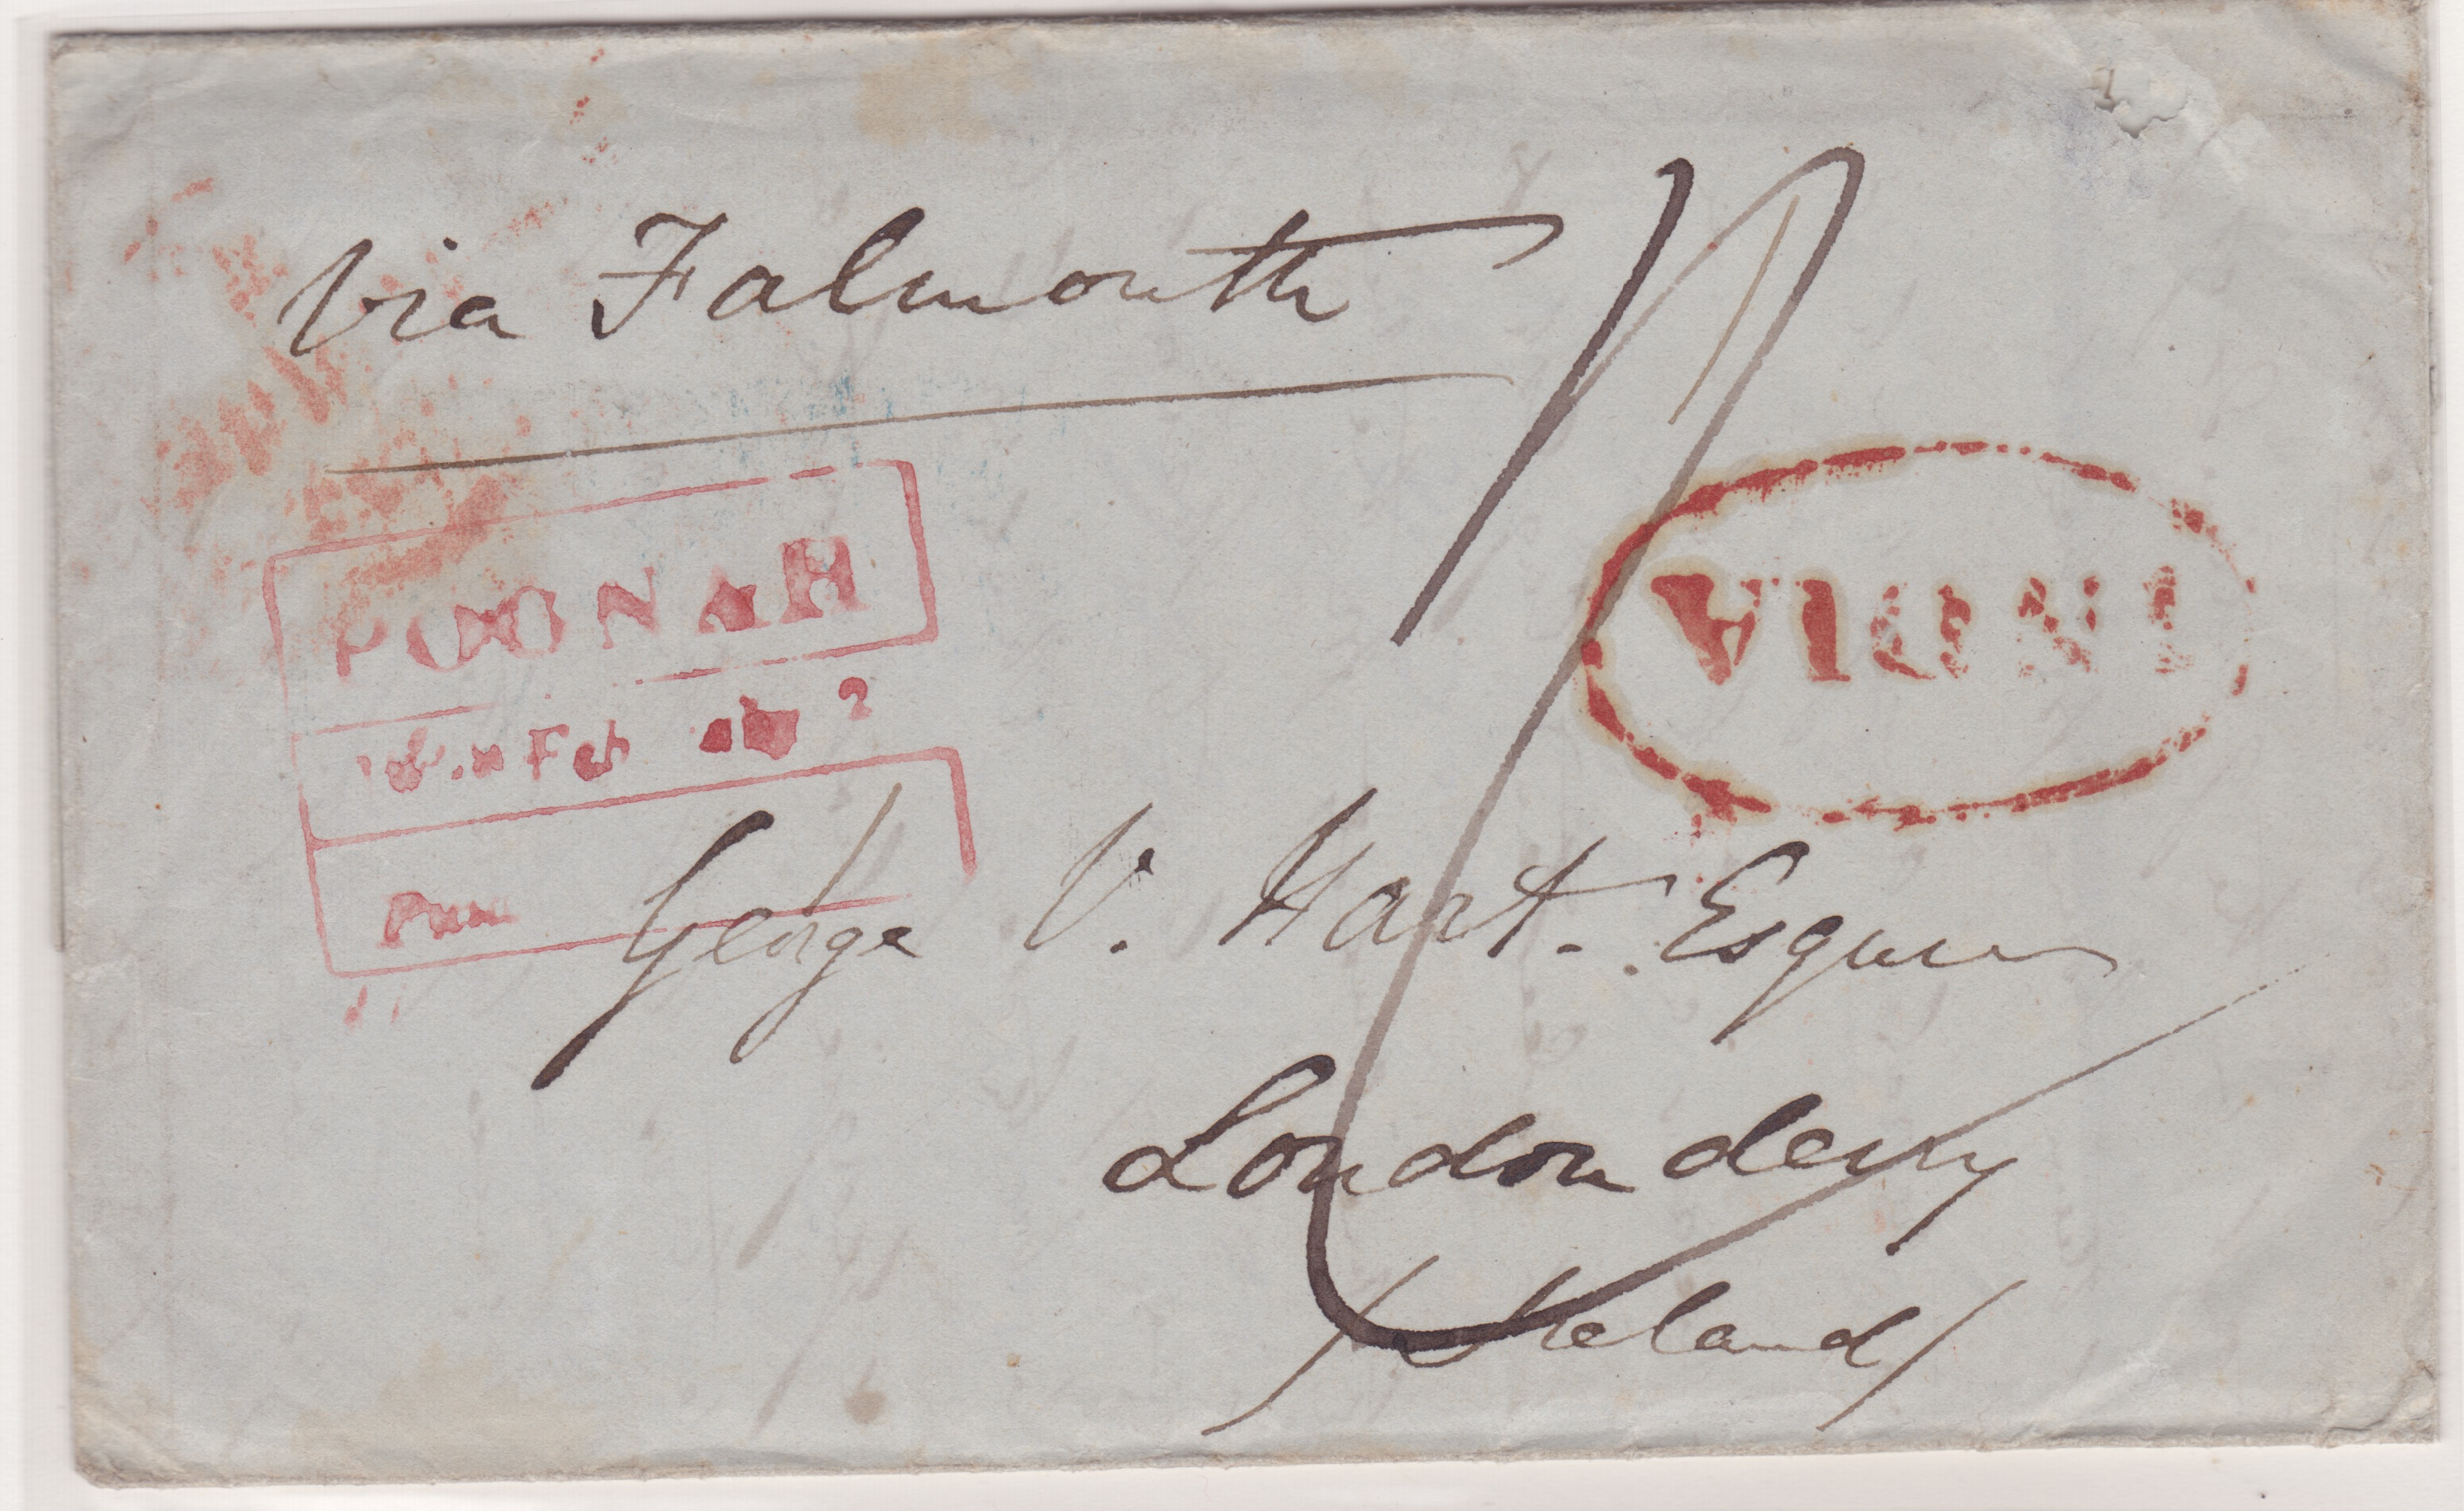 Via Falmouth
POONAH
Feb
INDIA
George V. Hart. Esquire
Londonderry
Ireland